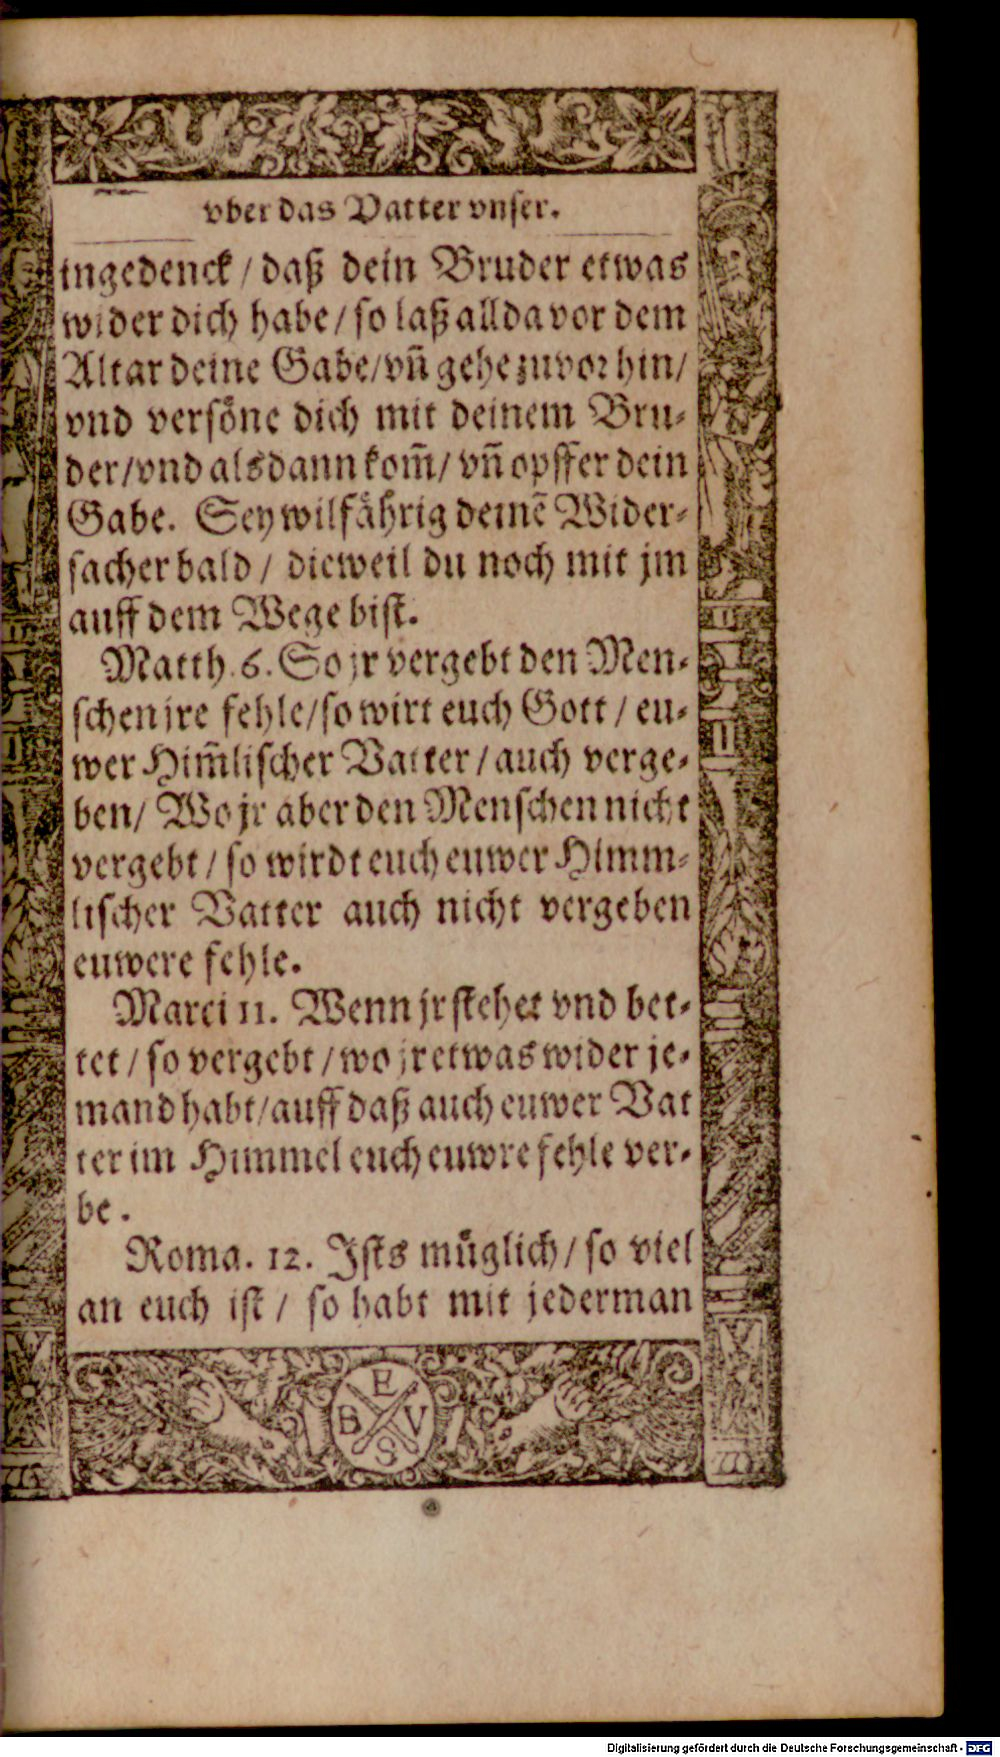 vber das Vatter vnser.
ingedenck / daß dein Bruder etwas
wider dich habe / so laß allda vor dem
Altar deine Gabe / vn̄ gehe zuvor hin /
vnd versöne dich mit deinem Bru-
der / vnd alsdann kom̄ / vn̄ opffer dein
Gabe. Sey wilfährig deinē Wider-
sacher bald / dieweil du noch mit jm
auff dem Wege bist.
Matth. 6. So jr vergebt den Men-
schen jre fehle / so wirt euch Gott / eu-
wer Him̄lischer Vatter / auch verge-
ben / Wo jr aber den Menschen nicht
vergebt / so wirdt euch euwer Himm-
lischer Vatter auch nicht vergeben
euwere fehle.
Marci 11. Wenn jr stehet vnd bet-
tet / so vergebt / wo jr etwas wider je-
mand habt / auff daß auch euwer Vat
ter im Himmel euch euwre fehle ver-
be.
Roma. 12. Ists müglich / so viel
an euch ist / so habt mit jederman
E
B V
S
Digitalisierung gefördert durch die Deutsche Forschungsgemeinschaft - DFG